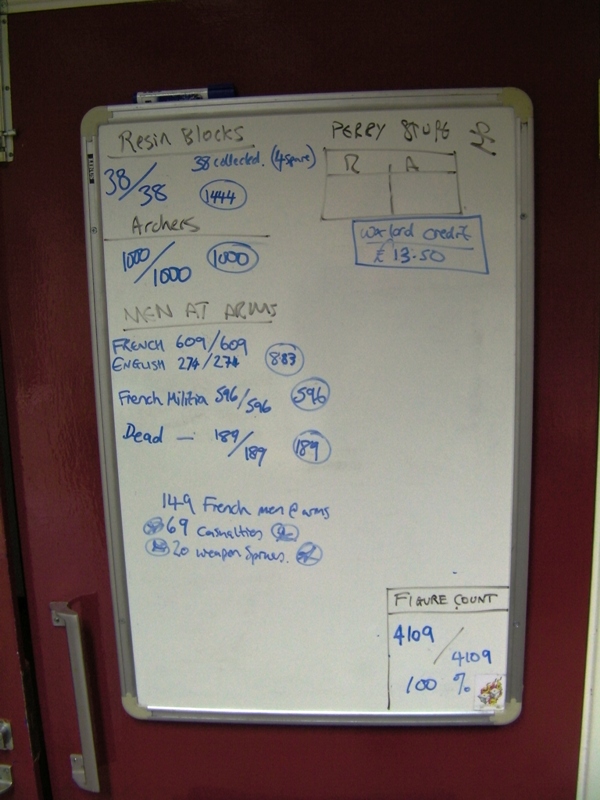 Resin Blocks
38/38 38 collected. (4 spare)
1444
Archers
1000/1000 1000
MEN AT ARMS
FRENCH 609/609
ENGLISH 274/274 883
French Militia 596/596 596
Dead — 189/189 189
149 French men @ arms
69 Casualties
20 weapon Sprues.
PERRY STUFF
R A
credit
£13.50
FIGURE COUNT
4109/4109
100 %